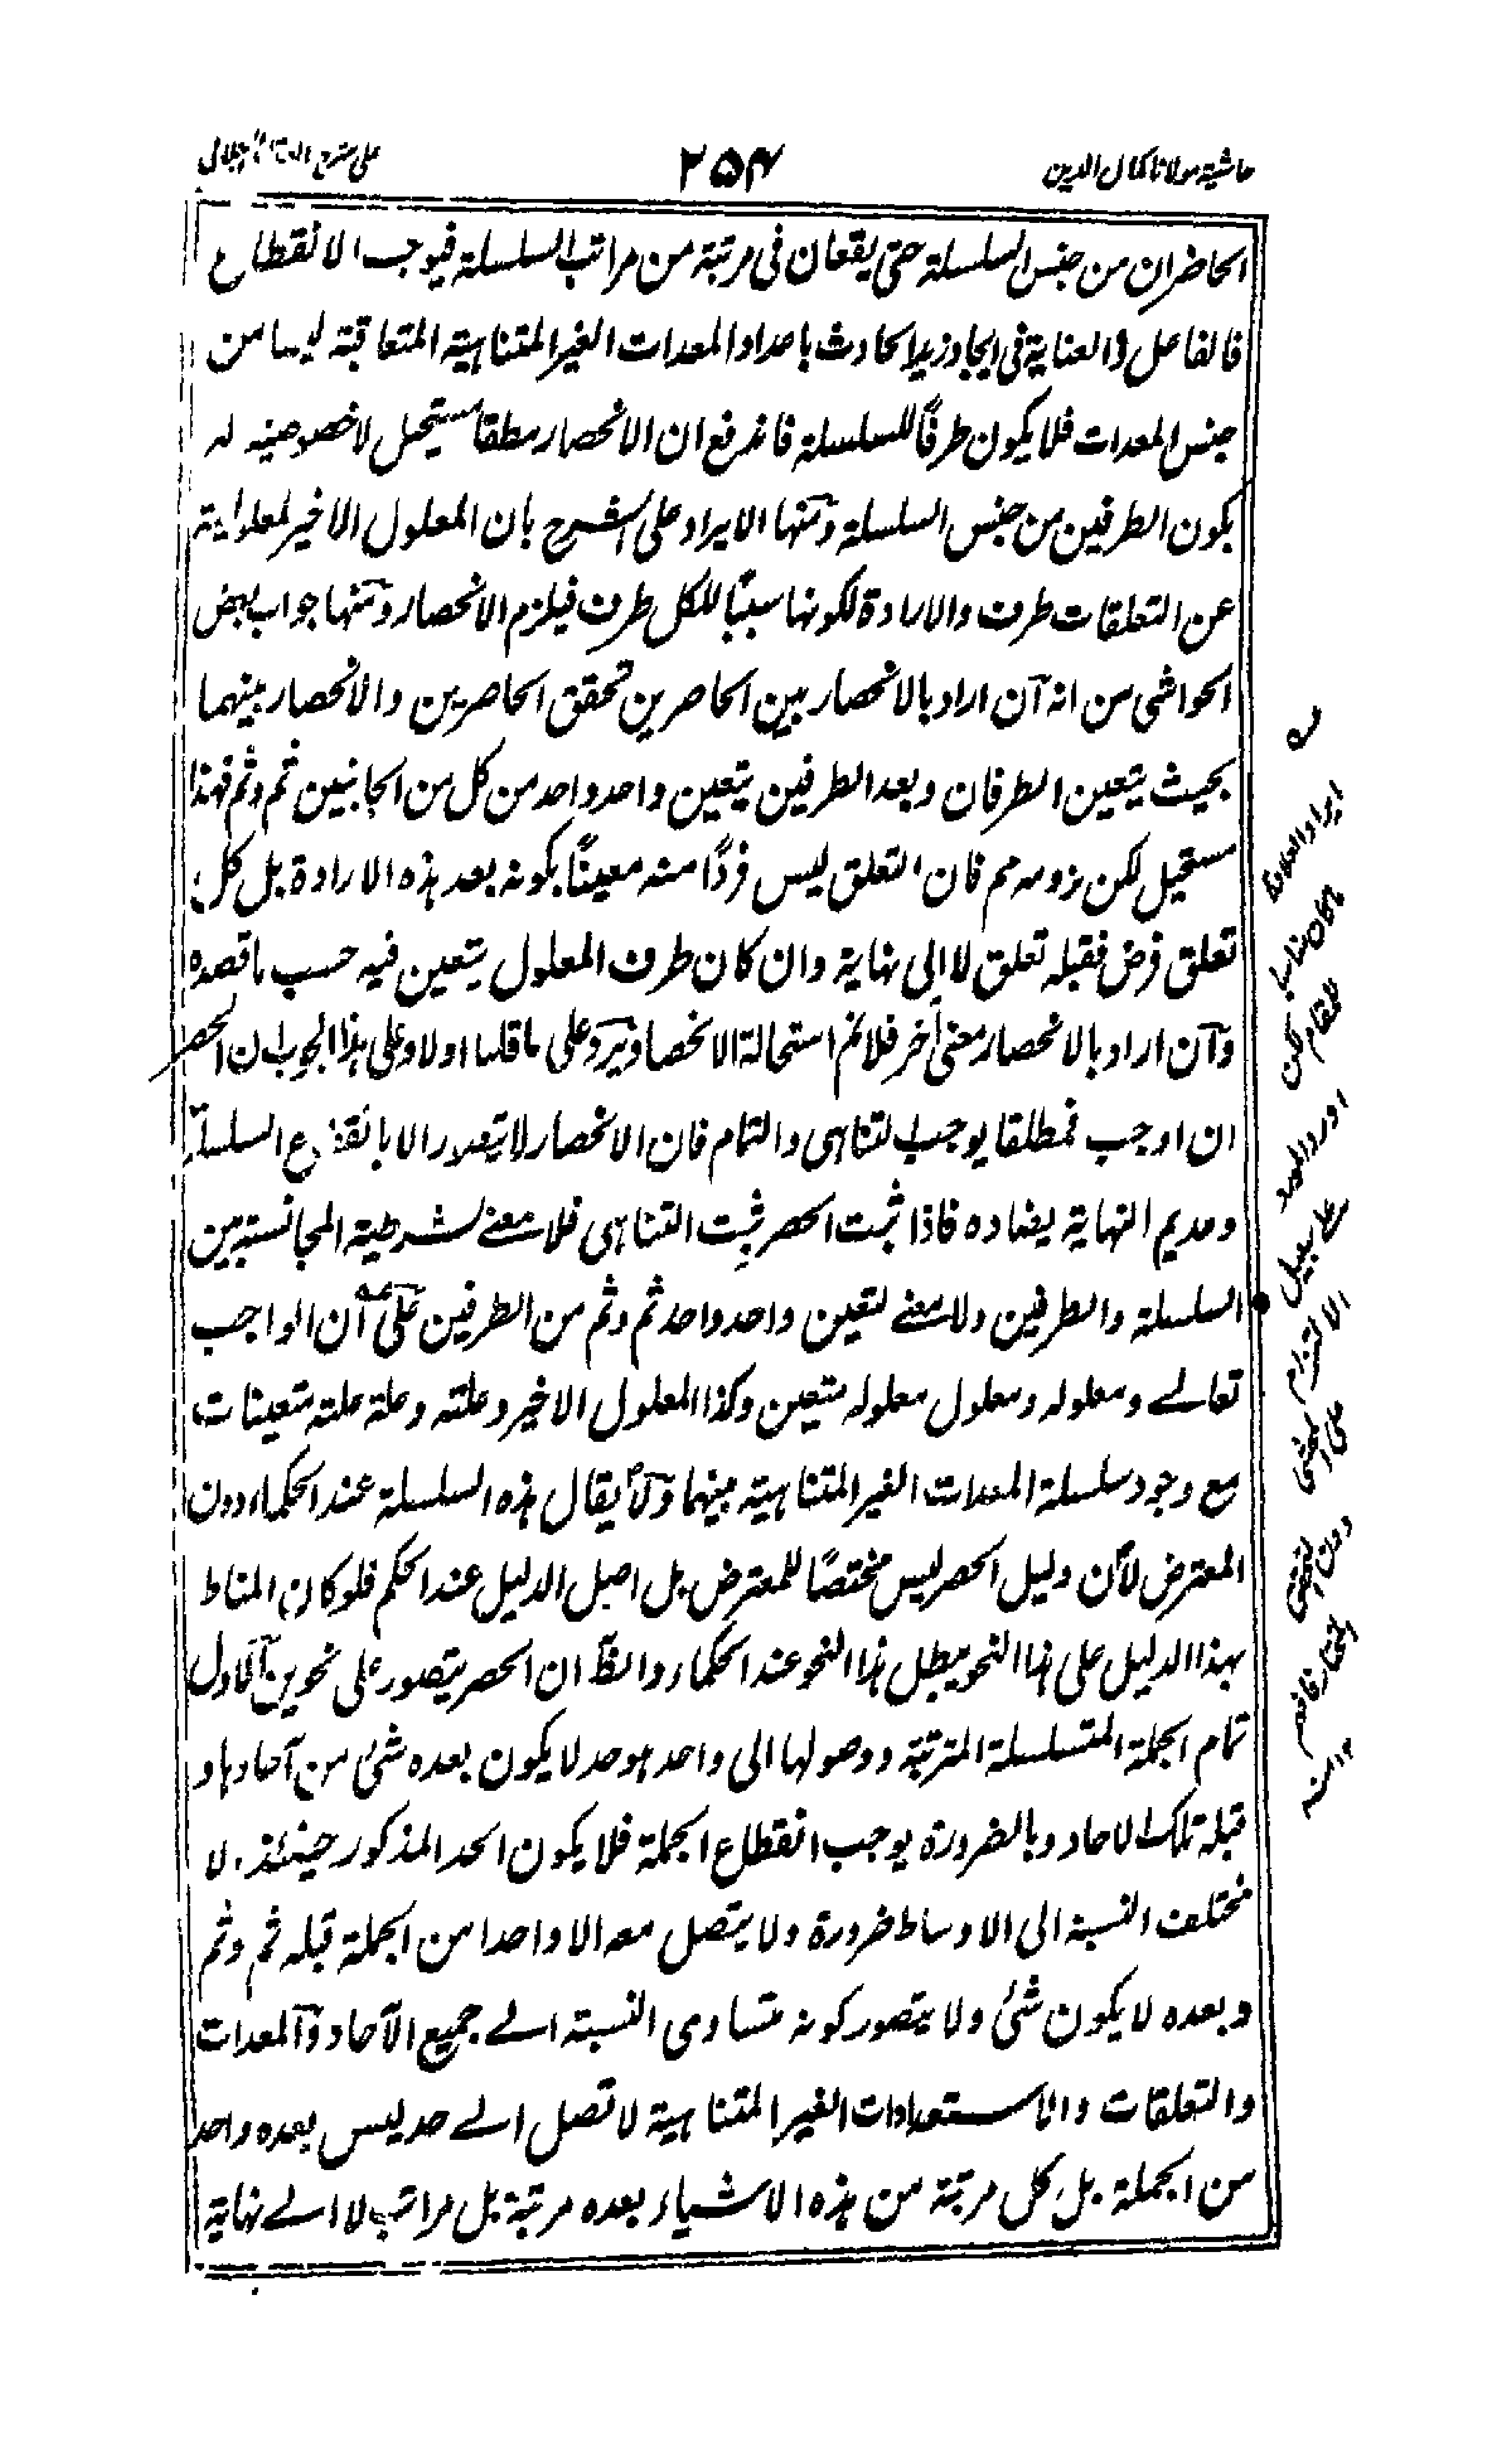 حاشية مولانا كمال الدين
٢٥٤
على شرح جلال
الحاضران من جنس السلسلة حتى يقعان فى مرتبة من مراتب السلسلة فيوجب الانقطاع
فالفاعل والعناية فى ايجاد زيد الحادث بامداد المعدات الغير المتناهية المتعاقبة ليسا من
جنس المعدات فلا يكون طرفًا للسلسلة فاندفع ان الانحصار مطلقا مستحيل لا خصوصية له
بكون الطرفين من جنس السلسلة ومنها الايراد على الشرح بان المعلول الاخير لمعلوليته
عن التعلقات طرف والارادة لكونها سببًا للكل طرف فيلزم الانحصار ومنها جواب بعض
الحواشى من انه آن اراد بالانحصار بين الحاصرين تحقق الحاصرين والانحصار بينهما
بحيث يتعين الطرفان وبعد الطرفين يتعين واحد واحد من كل من الجانبين ثم وثم فهذا
مستحيل لكن لزومه مم فان التعلق ليس فردًا منه معينًا بكونه بعد هذه الارادة بل كل
تعلق فرض فقبله تعلق لا الى نهاية وان كان طرف المعلول يتعين فيه حسب ما قصده
وآن اراد بالانحصار معنى آخر فلانم استحالة الانحصار ويرد على ما قلنا اولا وعلى هذا الجواب ان الحصر
ان اوجب فمطلقا يوجب التناهى والتمام فان الانحصار لا يتصور الا بانقطاع السلسلة
وعديم النهاية يضاده فاذا ثبت الحصر ثبت التناهى فلا معنے لشرطية المجانسة بين
السلسلة والطرفين ولا معنے لتعين واحد واحد ثم وثم من الطرفين على آن الواجب
تعالے ومعلوله ومعلول معلوله متعين وكذا المعلول الاخير وعلته وعلة علته متعينات
مع وجود سلسلة المعدات الغير المتناهية بينهما ولا يقال هذه السلسلة عند الحكماء دون
المعترض لأن دليل الحصر ليس مختصًا للمعترض بل اصل الدليل عند الحكم فلو كان المناط
بهذا الدليل على هذا النحو يبطل هذا النحو عند الحكماء والظ ان الحصر يتصور على نحوين الاول
تمام الجملة المتسلسلة المترتبة ووصولها الى واحد هو حد لا يكون بعده شئ من آحادها و
قبله تلك الاحاد وبالضرورة يوجب انقطاع الجملة فلا يكون الحد المذكور حينئذ لا
مختلف النسبة الى الاوساط ضرورة ولا يتصل معه الا واحدا من الجملة قبله ثم وثم
وبعده لا يكون شئ ولا يتصور كونه متساوى النسبة الے جميع الآحاد والمعدات
والتعلقات والاستعدادات الغير المتناهية لا تصل الے حد ليس بعده واحد
من الجملة بل كل مرتبة من هذه الاشياء بعده مرتبة بل مراتب لا الے نهاية
ايراد العلاوة
كان مناسبا
للمقام لكن
اورد
على سبيل